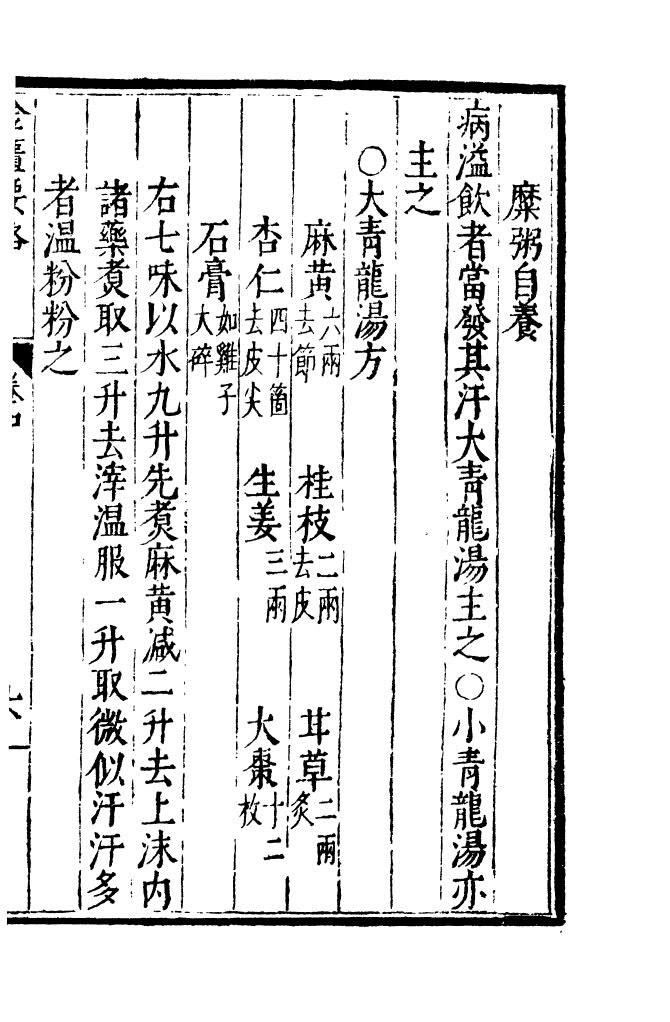 糜粥自養
病溢飲者當發其汗大青龍湯主之○小青龍湯亦
主之
○大青龍湯方
麻黃六兩去節 桂枝二兩去皮 甘草二兩炙
杏仁四十箇去皮尖 生姜三兩 大棗十二枚
石膏如雞子大碎
右七味以水九升先煑麻黃减二升去上沫内
諸藥煑取三升去滓温服一升取微似汗汗多
者温粉粉之